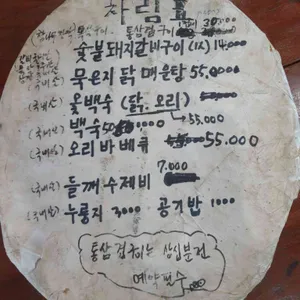 차림표
통삼겹구이 30000
숯불돼지갈비구이 (1人) 14,000
묵은지 닭 매운탕 55,000
(국내산) 옻백숙 (닭, 오리)
55,000
(국내산) 백숙
(국내산) 오리 바베큐 55.000
7.000
(국내산) 들깨 수제비
(국내산) 누룽지 3000 공기밥 1000
통삼겹구이는 삼십분전
예약필수